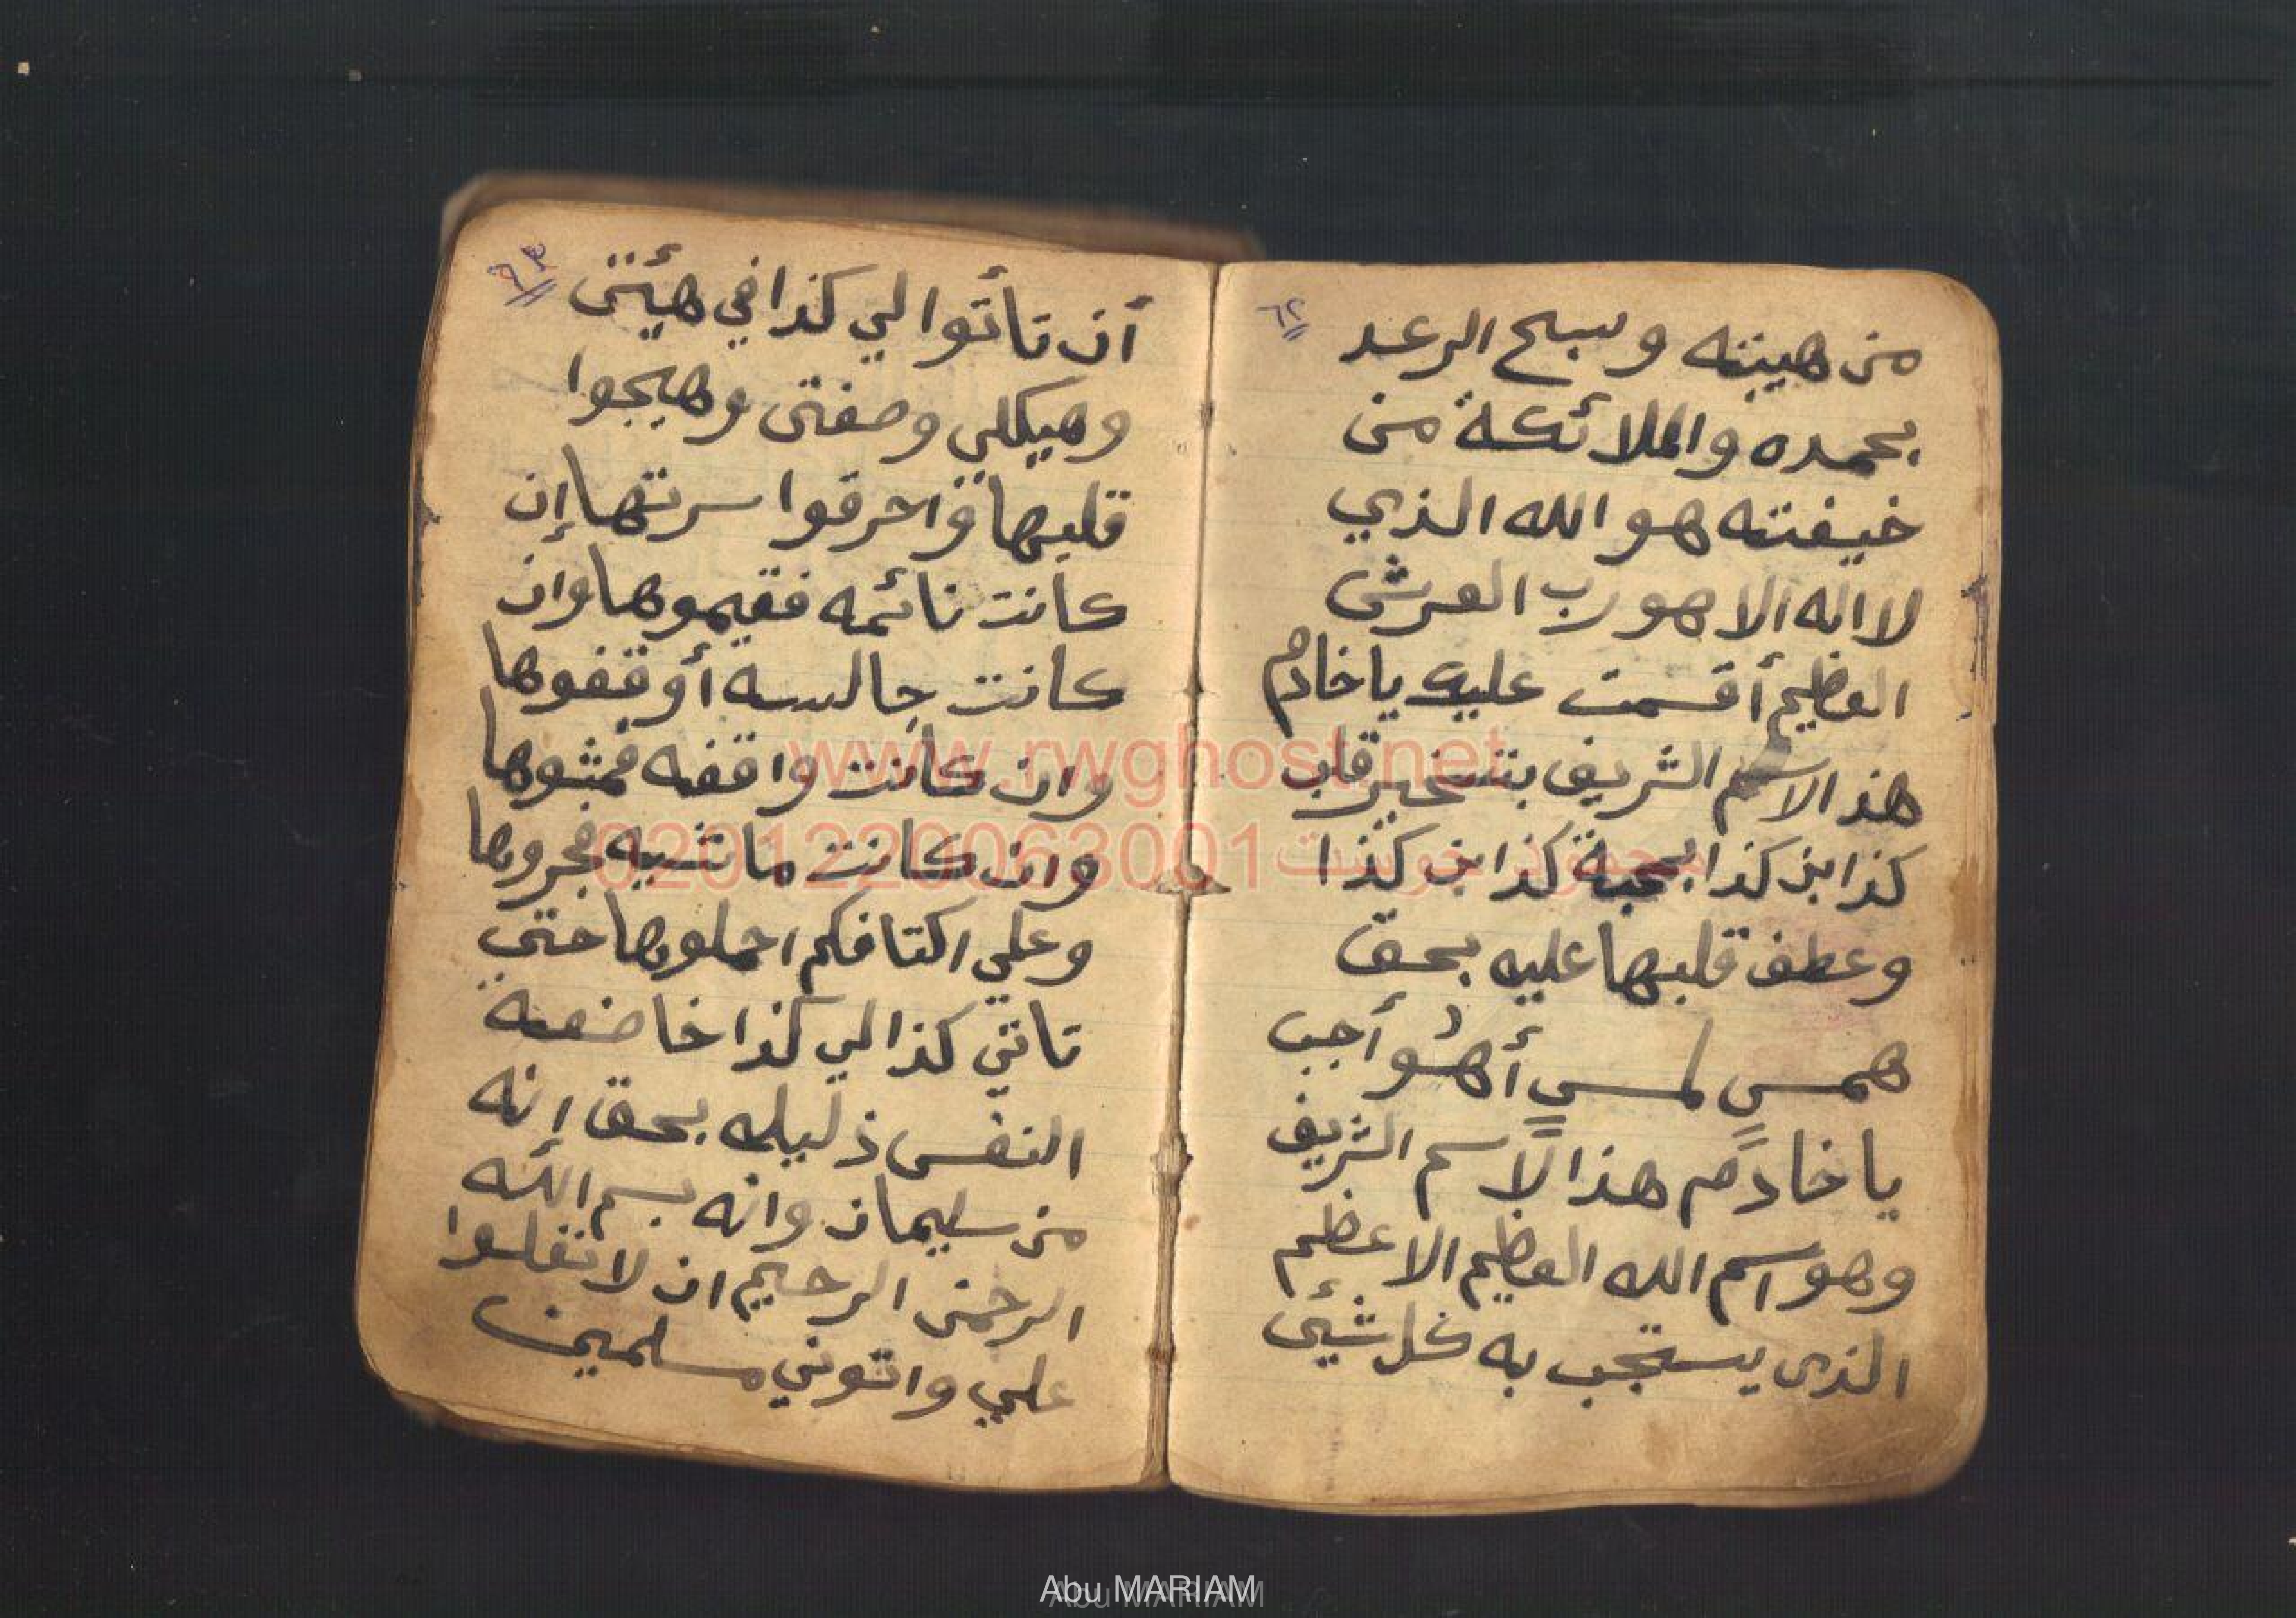 ٦٢
من هيبته وسبح الرعد
بحمده والملائكة من
خيفته هو الله الذي
لا اله الا هو رب العرش
العظيم أقسمت عليك يا خادم
هذ الاسم الشريف بتسخير قلب
كذا ابن كذا بمحبة كذا بن كذا
وعطف قلبها عليه بحق
همسٍ لمسٍ أهُوَ أجب
يا خادم هذا الاسم الشريف
وهو اسم الله العظيم الاعظم
الذى يستجب به كل شيئ
٦٣
أن تأتوا لي كذا في هيئتى
وهيكلي وصفتى وهيجوا
قلبها واحرقوا سرتها إن
كانت نائمه فقيموها وان
كانت جالسه أوقفوها
وان كانت واقفه فمشوها
وان كانت ماشيه فجروها
وعلي اكتافكم احملوها حتي
تاتي كذا لي كذا خاضعه
النفس ذليله بحق إنه
من سليمان وانه بسم الله
الرحمن الرحيم ان لا تعلوا
علي واتوني مسلمين
www.rwghost.net
محمود جوست 0201220063001
Abu MARIAM